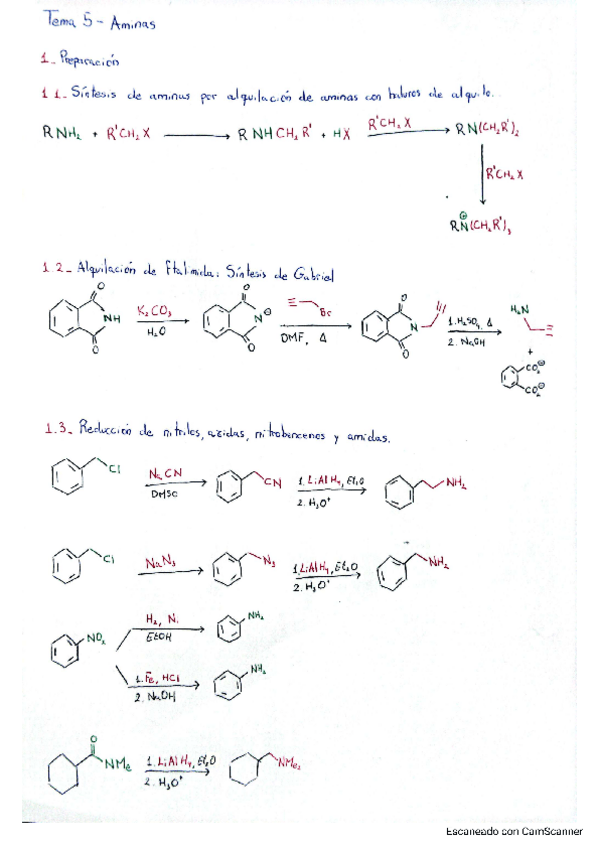 Tema 5 - Aminas
1_ Preparación
1.1_ Síntesis de aminas por alquilación de aminas con haluros de alquilo.
RNH₂ + R'CH₂X → RNHCH₂R' + HX R'CH₂X → RN(CH₂R')₂
R'CH₂X
RN⊕(CH₂R')₃
1.2_ Alquilación de Ftalimida: Síntesis de Gabriel
O O O O
NH K₂CO₃ H₂O N⊖ Br DMF, Δ N 1. H₂SO₄, Δ 2. NaOH H₂N
+
CO₂⊖
CO₂⊖
1.3_ Reducción de nitrilos, azidas, nitrobencenos y amidas.
Cl NaCN DMSO CN 1. LiAlH₄, Et₂O 2. H₃O⁺ NH₂
Cl NaN₃ N₃ 1. LiAlH₄, Et₂O 2. H₃O⁺ NH₂
NO₂ H₂, Ni EtOH NH₂
1. Fe, HCl 2. NaOH NH₂
O
NMe 1. LiAlH₄, Et₂O 2. H₃O⁺ NMe₂
Escaneado con CamScanner